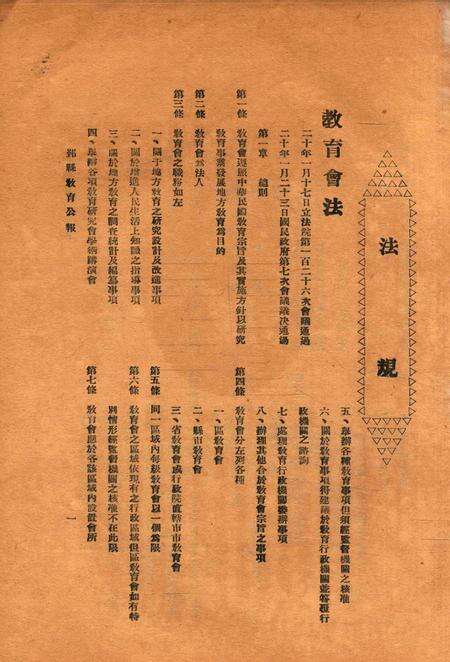 法規
教育會法
二十年一月十七日立法院第一百二十六次會議通過
二十年一月二十三日國民政府第七次會議議決通過
第一章　總則
第一條　教育會遵照中華民國教育宗旨及其實施方針以研究
教育事業發展地方教育為目的
第二條　教育會為法人
第三條　教育會之職務如左
一、關于地方教育之研究設計及改進事項
二、關於增進人民生活上知識之指導事項
三、關於地方教育之調查統計及編纂事項
四、舉辦各項教育研究會學術講演會
五、舉辦各種教育事項但須經監督機關之核准
六、關於教育事項得建議於教育行政機關並答覆行
政機關之諮詢
七、處理教育行政機關委辦事項
八、辦理其他合於教育會宗旨之事項
第四條　教育會分左列各種
一、區教育會
二、縣市教育會
三、省教育會或行政院直轄市市教育會
第五條　同一區域內每級教育會以一個為限
第六條　教育會之區域依現有之行政區域但區教育會如有特
別情形經監督機關之核准不在此限
第七條　教育會應於各該區域內設置會所
鄞縣教育公報
一